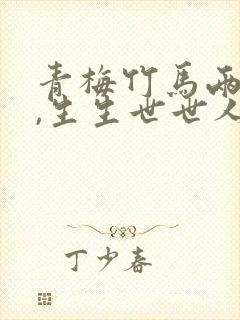 青梅竹馬兩
,生生世世人
丁少春